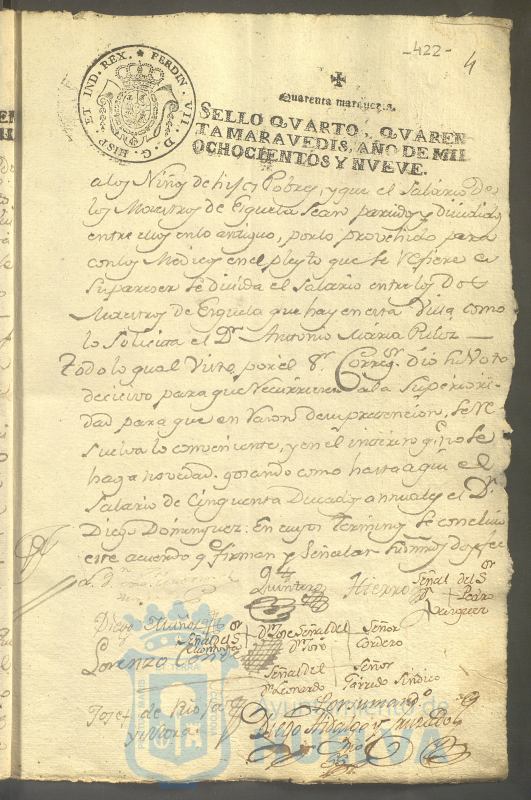 -422-
4
HISP. ET IND. REX. * FERDIN. VII. D. G.
Quarenta maravedis.
SELLO QVARTO, QVAREN
TA MARAVEDIS, AÑO DE MIL
OCHOCIENTOS Y NVEVE.
a los Niños de hijos Pobres, y que el Salario de
los Maestros de Escuela sean partidos y divididos
entre ellos en lo antiguo, por lo provehido para
con los Medicos en el pleyto que se refiere a
Suparecer se divida el Salario entre los dos
Maestros de Escuela que hay en esta Villa como
lo Solicita el Dn. Antonio Maria
Todo lo qual Visto por el Sr. Correg.or dio su Voto
decisivo para que se a la Superiori
dad para que en razon de su presencion, se Re
suelva lo conveniente, y en el interin q.e no se
haga novedad. gozando como hasta aqui el
Salario de Cinquenta Ducados annuales el Dn.
Diego Dominguez. En cuyos terminos se concluio
este acuerdo q.e firman y Señalan sus mds. doy fee
Quintero Hierro Señal del Sr. Pedro
Diego Muñoz
Señal del Sr.
Dn. Jose Señal del Sr. Toro
Señor Cordero
Lorenzo
Señal del Sr. Leonardo
Señor Garrido Sindico
Josef de Rioja
y Viana
Por su mando
Diego Hidalgo y
Ayuntamiento de